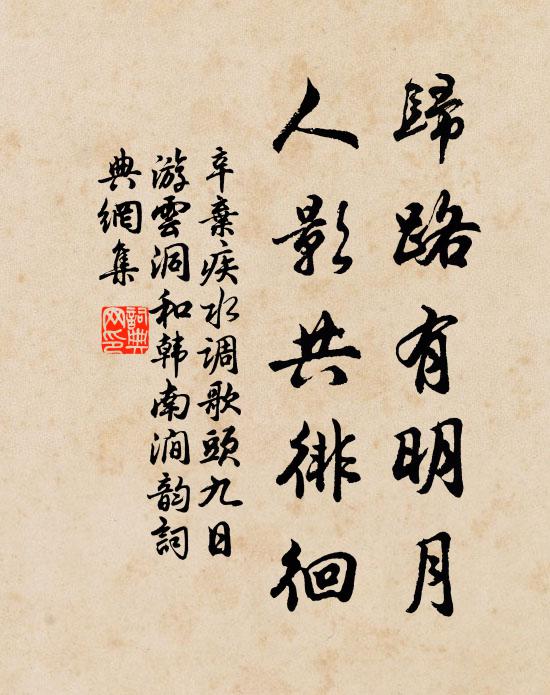 歸路有明月
人影共徘徊
辛棄疾水调歌頭九日
游雲洞和韩南澗韵詞
典網集
詞典網印